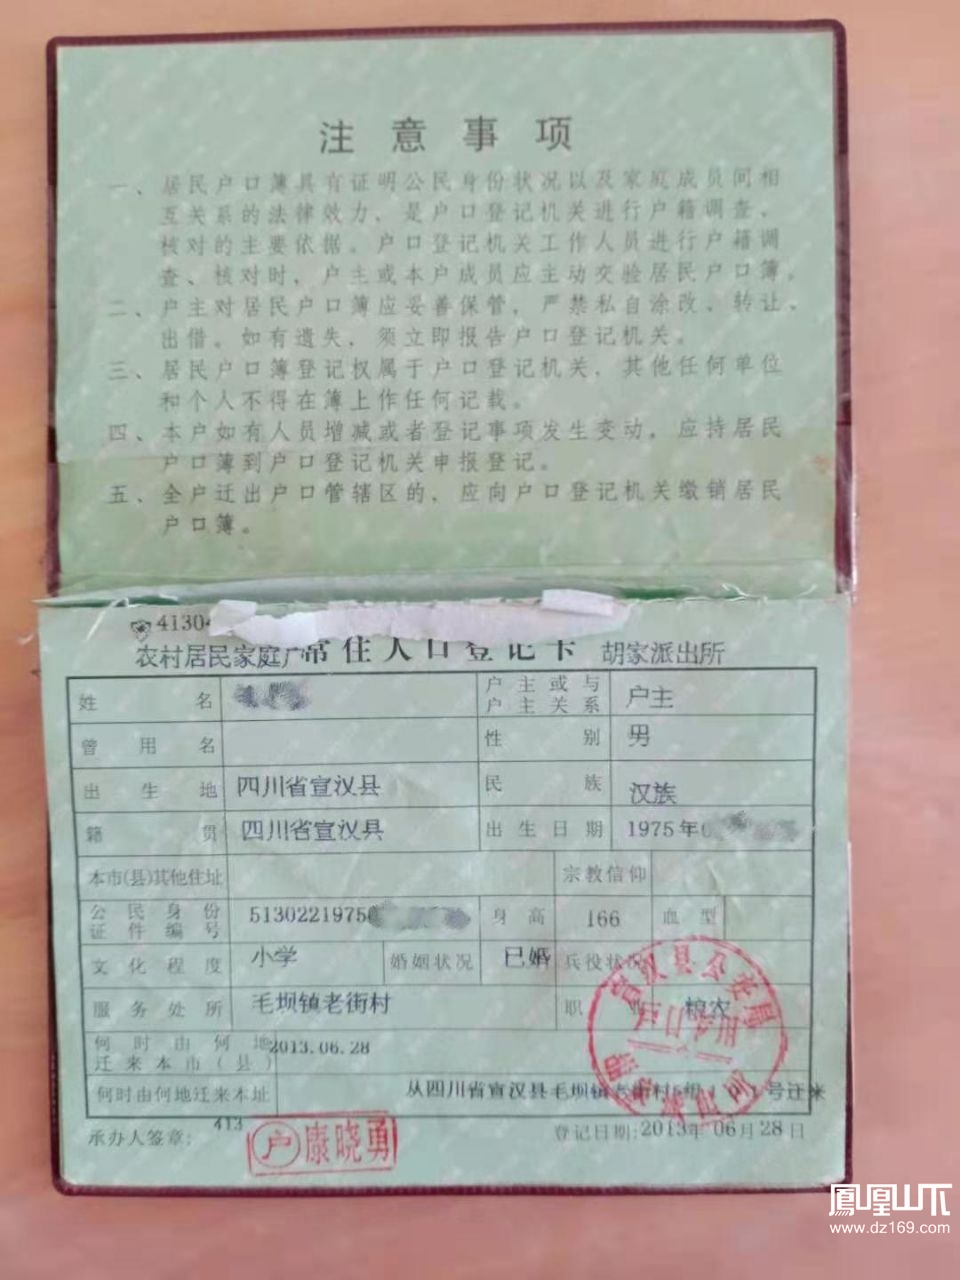 注意事项
一、居民户口簿具有证明公民身份状况以及家庭成员间相
互关系的法律效力，是户口登记机关进行户籍调查、
核对的主要依据。户口登记机关工作人员进行户籍调
查、核对时，户主或本户成员应主动交验居民户口簿。
二、户主对居民户口簿应妥善保管，严禁私自涂改、转让、
出借。如有遗失，须立即报告户口登记机关。
三、居民户口簿登记权属于户口登记机关，其他任何单位
和个人不得在簿上作任何记载。
四、本户如有人员增减或者登记事项发生变动，应持居民
户口簿到户口登记机关申报登记。
五、全户迁出户口管辖区的，应向户口登记机关缴销居民
户口簿。
41304
农村居民家庭户 常住人口登记卡 胡家派出所
姓名 户主或与户主关系 户主
曾用名 性别 男
出生地 四川省宣汉县 民族 汉族
籍贯 四川省宣汉县 出生日期 1975年
本市(县)其他住址 宗教信仰
公民身份证件编号 5130221975 身高 166 血型
文化程度 小学 婚姻状况 已婚 兵役状况
服务处所 毛坝镇老街村 职业 粮农
何时由何地迁来本市(县) 2013.06.28
何时由何地迁来本址 从四川省宣汉县毛坝镇老街村5组 号迁来
承办人签章: 413 户 康晓勇 登记日期:2013年06月28日
宣汉县公安局
户口专用
鳳凰山下
www.dz169.com